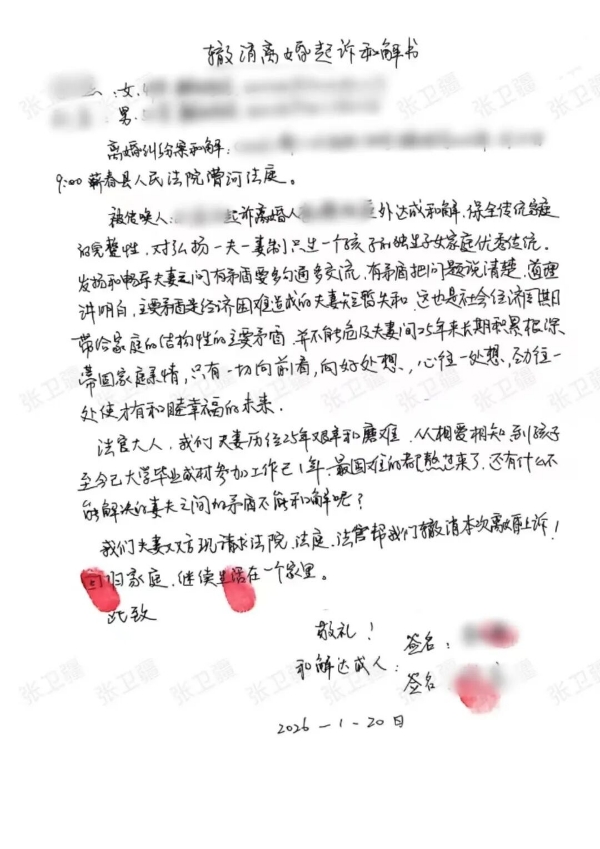 辙消离婚起诉和解书
：女.
男.
离婚纠纷案和解：
9:00蕲春县人民法院漕河法庭。
被传唤人: 起诉离婚人 外达成和解，保全传统家庭
的完整性，对弘扬一夫一妻制只生一个孩子和独生子女家庭优秀传统。
发扬和畅导夫妻之间有矛盾要多沟通多交流，有矛盾把问题说清楚，道理
讲明白，主要矛盾是经济困难造成的夫妻短暂失和，这也是社会经济周期
带给家庭的结构性的主要矛盾，并不能危及夫妻间25年来长期积累根深
蒂固家庭亲情，只有一切向前看，向好处想、，心往一处想，劲往一
处使才有和睦幸福的未来．
法官大人，我们夫妻历经25年艰辛和磨难，从相爱相知到孩子
至今已大学毕业成材参加工作已1年，最困难的都熬过来了，还有什么不
能解决的妻夫之间的矛盾不能和解呢？
我们夫妻双方现请求法院、法庭、法官帮我们辙消本次离婚上诉！
回归家庭，继续生活在一个家里。
此致
敬礼！
签名：
和解达成人：
签名
2026-1-20日
张卫疆